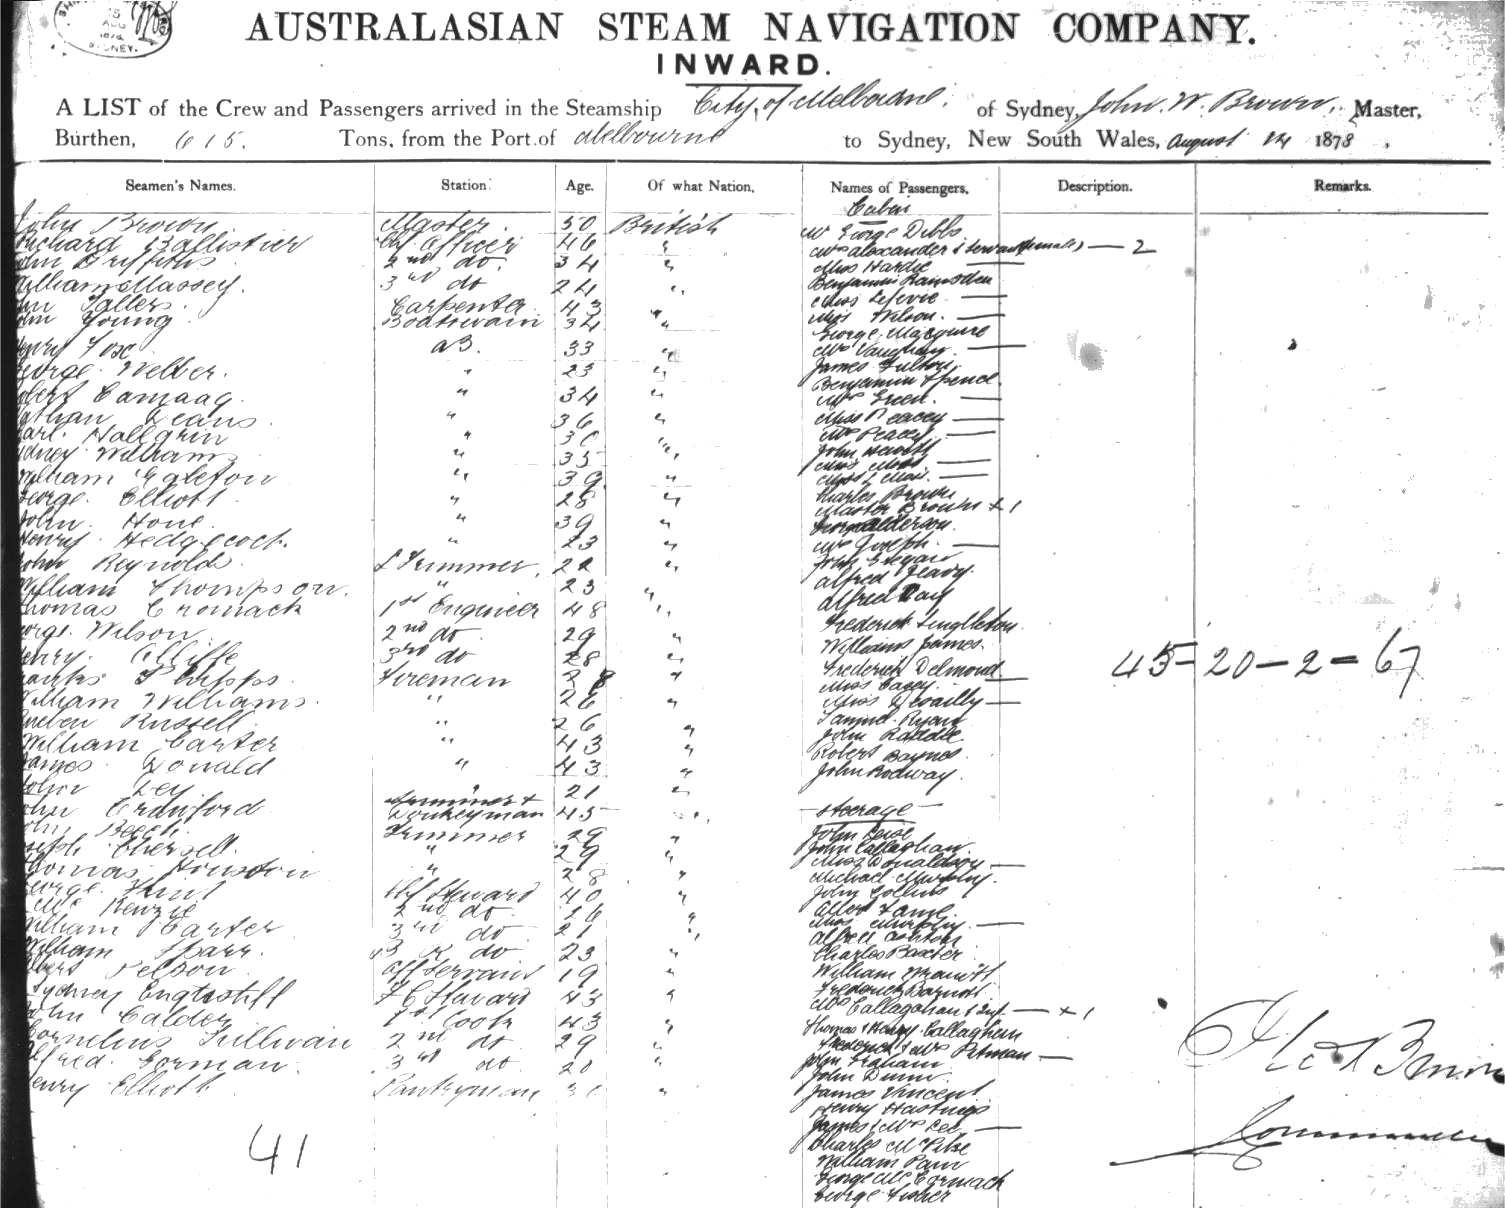 SYDNEY.
AUSTRALASIAN STEAM NAVIGATION COMPANY.
INWARD.
A LIST of the Crew and Passengers arrived in the Steamship City of Melbourne, of Sydney, John. W. Brown, Master,
Burthen, 615. Tons, from the Port of Melbourne to Sydney, New South Wales, August 14 1878,
Seamen's Names. Station. Age. Of what Nation, Names of Passengers, Description. Remarks.
Cabin
John Brown Master. 50 British Mr George Dibbs
Richard Ballistier Chf Officer 46 " Mrs Alexander & Servant (female) — 2
Griffiths 2nd do. 34 " Miss Hardie —
William Massey. 3rd do 24 " Benjamin Ramsden
Carpenter 43 " Miss Lefevre —
Young Boatswain 34 " Miss Wilson. —
George Macquire
Henry Fox AB. 33 " Mrs Vaughan. —
George. Welber. " 23 " James Fulton
Benjamin Spence.
Robert Camaag. " 34 " Mrs Green. —
Nathan Deans. " 36 " Miss Peacey —
Carl. Hallgrin " 30 " Mrs Peacey —
Sydney Williams " 35 " John
Miss Moss. —
William Egleton " 39. " Miss L Moss. —
George. Elliott " 28 " Charles Brown
Master Brown + 1
John. Hone. " 39 " Anderson.
Henry Hedgecock. " 23 " Mrs Joseph. —
John Reynolds. Trimmer. 22 " John Edgar
William Thompson. " 23 " Alfred Feavy.
Alfred Day
Thomas Cromack 1st Engineer 48 " Frederick Singleton
George. Wilson 2nd do. 29 " William James.
Henry. 3rd do 28 " Frederick Delmond
45 — 20 — 2 = 67
Phipps. Fireman 28 " Miss Casey. —
William Williams. " 26 " Miss —
Reuben Russell " 26 " Samuel Ryan
William Carter " 43 " John Raddle
James Donald " 43 " Robert Baynes
John Ley " 21 " John Rodway.
John Crawford Trimmer & Donkeyman 45 " — Steerage —
John Beech. Trimmer 29 " John
Joseph " 29 " John Callaghan.
Miss Donaldson —
Thomas Houston " 28 " Michael Murphy.
George. Hunt Chf Steward 40 " John Collins
McKenzie 2nd do. 26 " Albert Lane.
William Carter 3rd do 21 " Miss Murphy. —
Alfred Ashton
William Sparr. do 23 " Charles Baxter
Albert Nelson Aft Servant 19 " William
Sydney F C Steward 43 " Frederick Barnott
Mrs Callagahan & Inf — + 1
John Calder 1st Cook 43 " Thomas & Henry Callaghan
Cornelius Sullivan 2nd do 29 " Frederick & Mrs Pitman —
Alfred. Gorman. 3rd do 20 " John Graham
John Dunn.
Henry Elliott Pantryman " James Vincent
Henry Hastings
James & Mrs Lee —
41
Charles McPike
William Parr
George McCormack
George Fisher
Jno W Brown
Commander